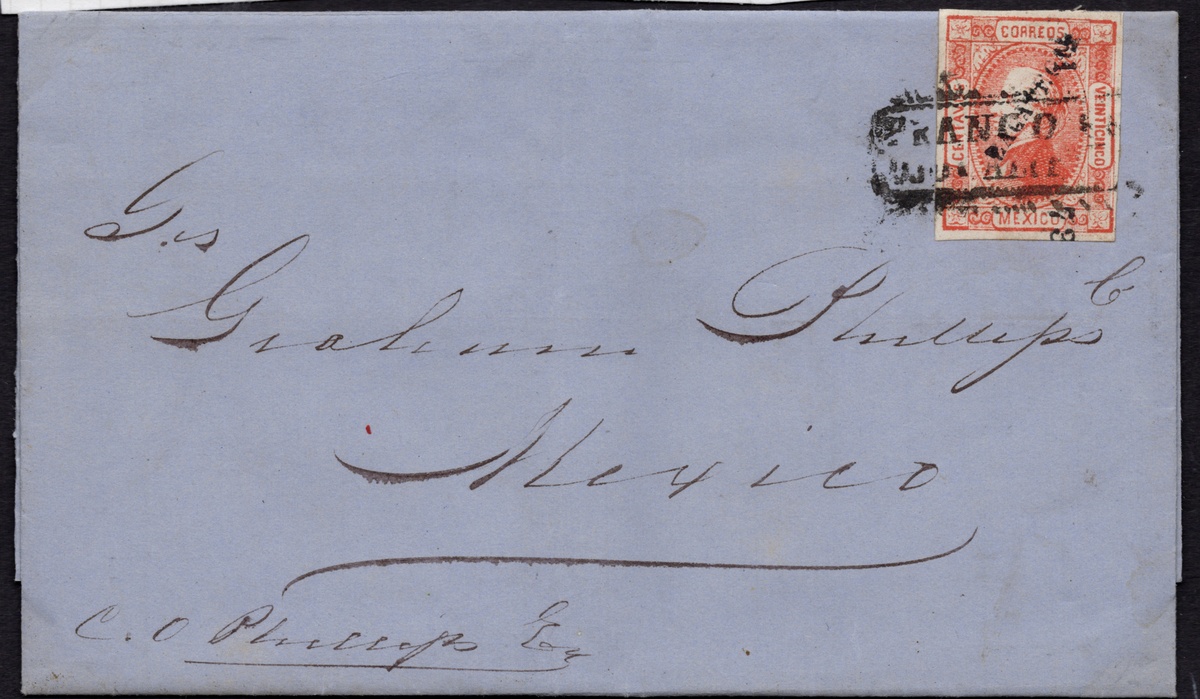 CORREOS
CENTAVOS
VEINTICINCO
FRANCO
MEXICO
G.es
Graham Phillips C
Mexico
C. O Phillips Eq